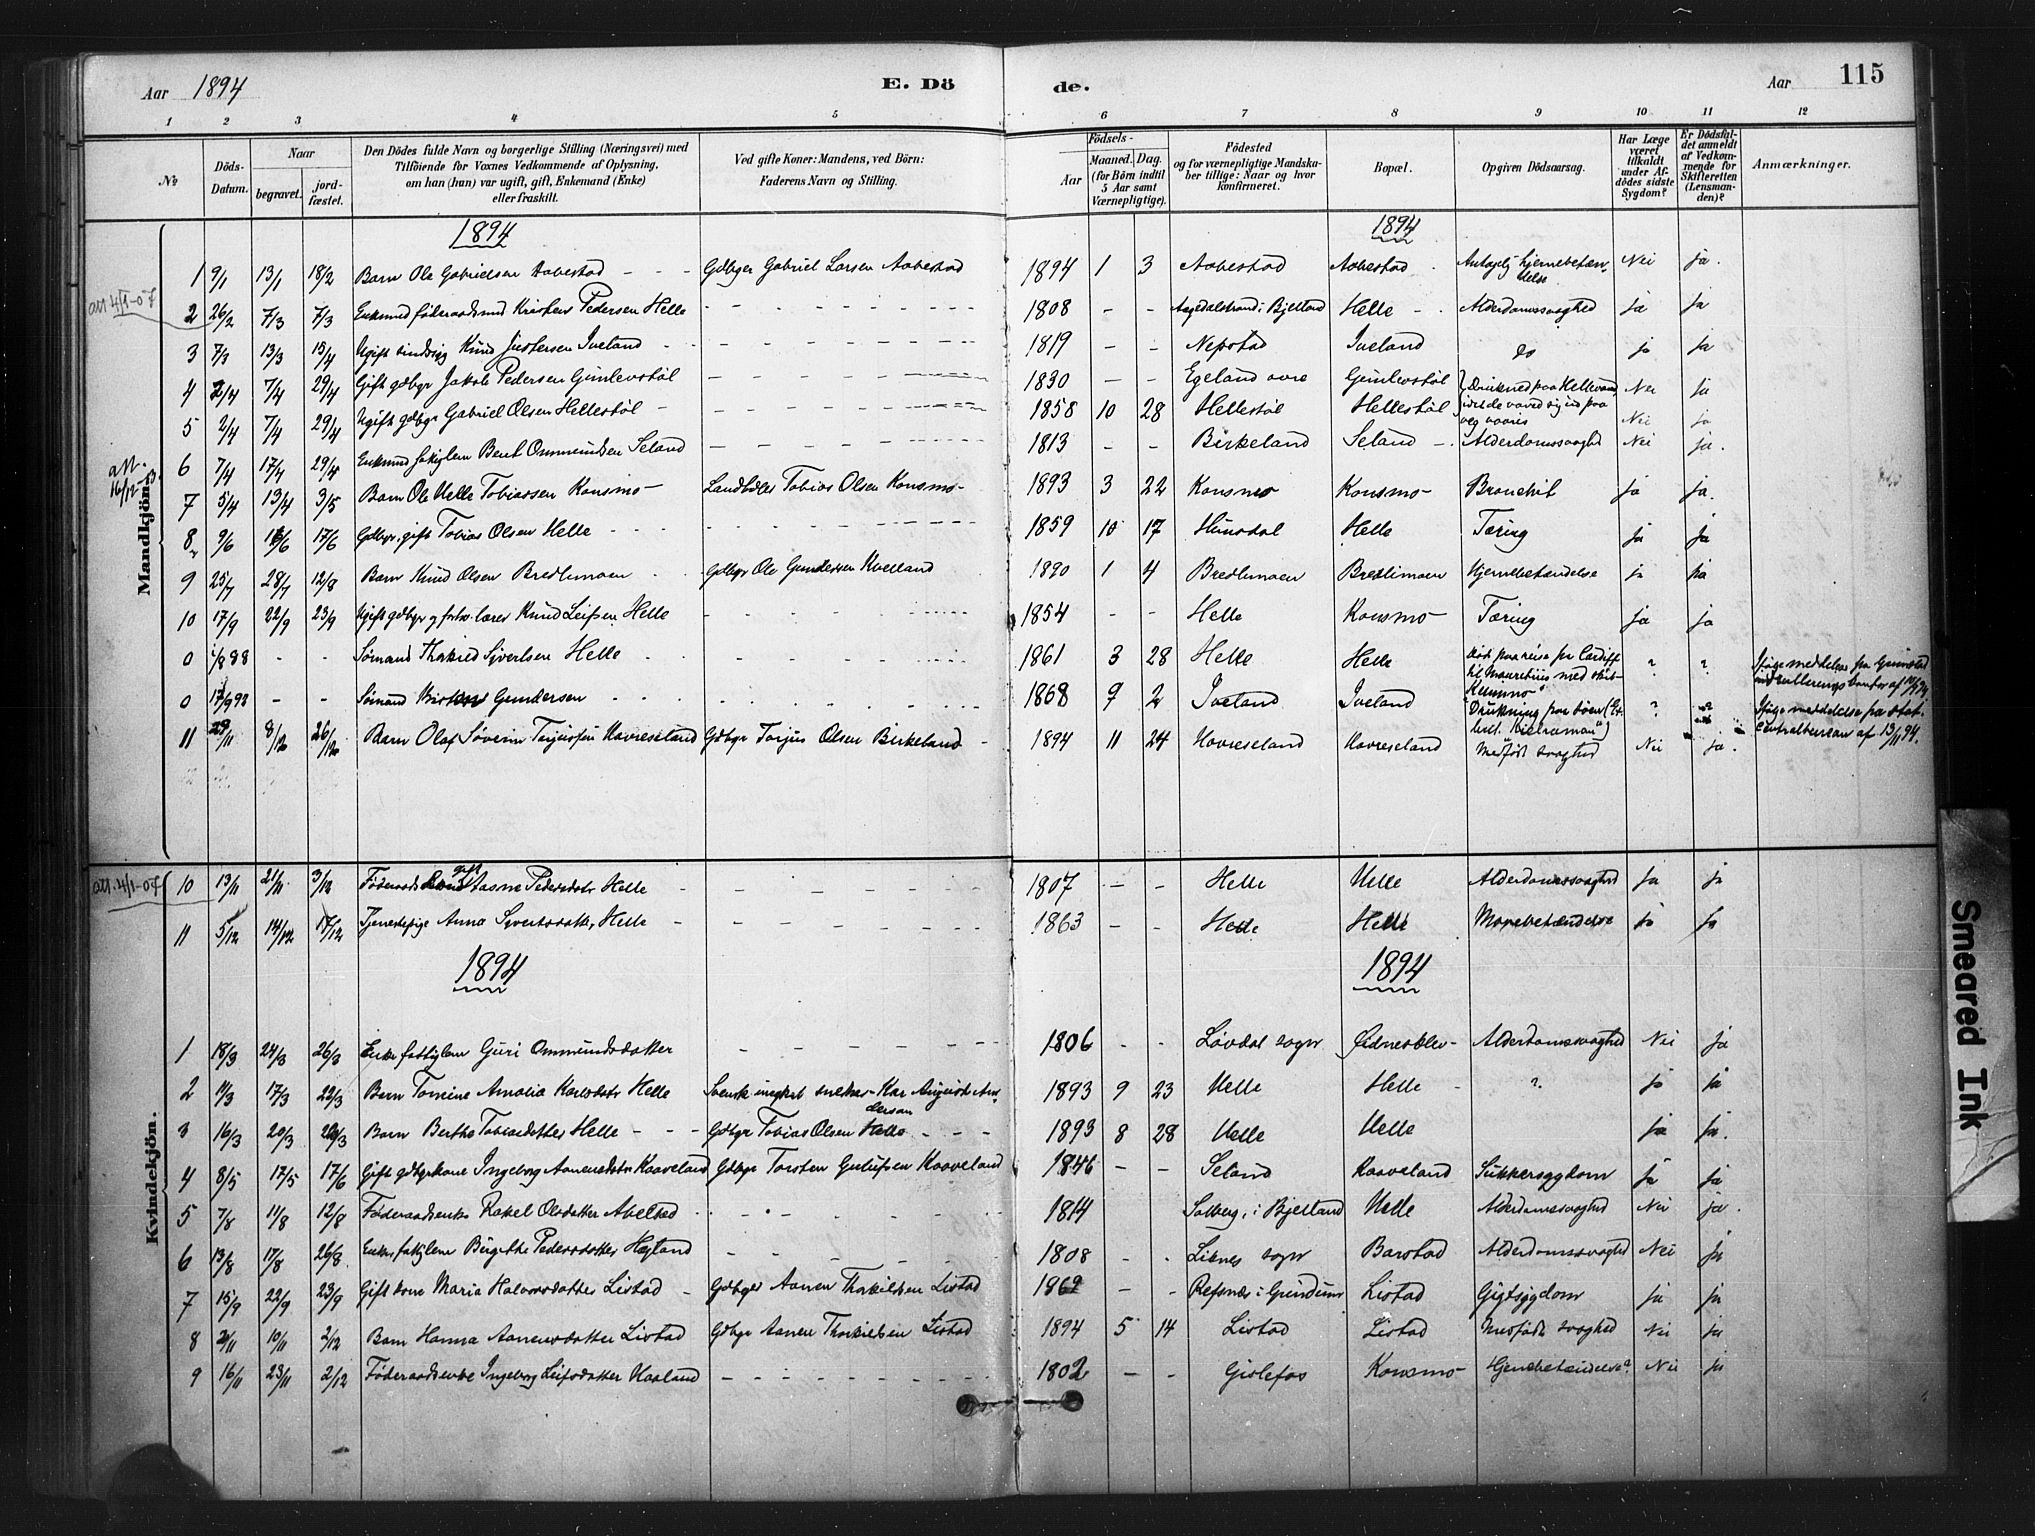 Aar 1894 E. Dö de. Aar 115
1 2 3 4 5 6 7 8 9 10 11 12
№
Döds-Datum.
Naar
begravet.
jord-fæstet.
Den Dödes fulde Navn og borgerlige Stilling (Næringsvei) med
Tilföiende for Voxnes Vedkommende af Oplysning,
om han (hun) var ugift, gift, Enkemand (Enke)
eller fraskilt.
Ved gifte Koner: Mandens, ved Börn:
Faderens Navn og Stilling.
Födsels-
Aar
Maaned. Dag.
(for Börn indtil
5 Aar samt
Værnepligtige).
Födested
og for værnepligtige Mandska-
ber tillige: Naar og hvor
konfirmeret.
Bopæl.
Opgiven Dödsaarsag.
Har Læge
været
tilkaldt
under Af-
dödes sidste
Sygdom?
Er Dödsfal-
det anmeldt
af Vedkom-
mende for
Skifteretten
(Lensman-
den)?
Anmærkninger.
Mandkjön.
1894 1894
1 9/1 13/1 18/2 Barn Ole Gabrielsen Aabestad Gdbger Gabriel Larsen Aabestad 1894 1 3 Aabestad Aabestad Nei ja.
att 4/1-07
2 26/2 7/3 7/3 Pedersen Helle 1808 - - i Bjelland Helle Alderdomssvaghed ja ja
3 7/3 13/3 15/4 Ugift Knud Iveland 1819 - - Nepstad Iveland do ja ja
4 2/4 7/4 29/4 Gift gdbgr Jakob Pedersen Gunlevstøl 1830 - - Egeland øvre Gunlevstøl Druknede paa Hellevand, Nei ja
5 2/4 7/4 29/4 Ugift gdbgr Gabriel Olsen Hellestøl 1858 10 28 Hellestøl Hellestøl Nei ja
6 7/4 17/4 29/4 Bent Ommundsen Seland 1813 - - Birkeland Seland Alderdomssvaghed Nei ja.
att.
16/12-
7 5/4 13/4 3/5 Barn Ole Helle Tobiassen Konsmo Tobias Olsen Konsmo 1893 3 22 Konsmo Konsmo ja ja.
8 9/6 16/6 17/6 Gdbgr. gift Tobias Olsen Helle 1859 10 17 Hunsdal Helle Tæring ja ja
9 25/7 28/7 12/8 Barn Knud Olsen Bredlimoen Gdbgr Ole Gundersen Kvelland 1890 1 4 Bredlimoen Bredlimoen Hjernebetændelse ja ja
10 17/9 22/9 23/9 Ugift gdbgr og lærer Knud Leifsen Helle 1854 - - Helle Konsmo Tæring ja ja
0 1/8 88 - - Sømand Thorkild Sjvertsen Helle 1861 3 28 Helle Helle Død paa reise fra Cardiff ? ?
til Mauretius med skib
0 17/9 93 - - Sømand Gundersen 1868 9 2 Iveland Iveland Drukning paa søen ? ?
11 29/11 8/12 26/12 Barn Olaf Søverin Terjussen Havreseland Gdbgr Terjus Olsen Birkeland 1894 11 24 Havreseland Havreseland Medfødt svaghed Nei ja.
13/11 94.
Kvindekjön.
att. 4/1-07
10 13/11 21/11 3/12 gift Aasne Pedersdatr Helle 1807 - - Helle Helle Alderdomssvaghed ja ja
11 5/12 14/12 17/12 Tjenestepige Anna Sjvertsdatter Helle 1863 - - Helle Helle Mavebetændelse ja ja
1894 1894
1 18/3 24/3 26/3 Enke fattiglem Guri Ommundsdatter 1806 - - Løvdal sogn Alderdomssvaghed Nei ja
2 11/3 17/3 22/3 Barn Tomine Amalia Karlsdatr Helle Svensk August An-
derson 1893 9 23 Helle Helle ? ja ja
3 16/3 20/3 26/3 Barn Berthe Tobiasdatter Helle Gdbgr Tobias Olsen Helle 1893 8 28 Helle Helle ja ja.
4 8/5 17/5 17/6 Gift gdbgrkone Ingeborg Aanensdatr Kaaveland Gdbgr Torsten Kaaveland 1846 - - Seland Kaaveland Sukkersygdom ja ja
5 7/8 11/8 12/8 Føderaadsenke Rakel Olsdatter 1814 Solberg i Bjelland Helle Alderdomssvaghed Nei ja.
6 13/8 17/8 26/8 Birgithe Pedersdatter Høgland 1808 - - Liknes sogn Barstad Alderdomssvaghed Nei ja
7 15/9 22/9 23/9 Gift kone Maria Halvorsdatter Listad Gdbger Aanen Thorkildsen Listad - - Refsnes i Listad Gigtsygdom ja ja
8 2/11 10/11 2/12 Barn Hanna Aanensdatter Listad Gdbgr Aanen Thorkildsen Listad 1894 5 14 Listad Listad Medfødt svaghed Nei ja
9 16/11 23/11 2/12 Føderaadsenke Ingeborg Leifsdatter Haaland 1802 - - Gislefos Konsmo Nei ja
Smeared Ink